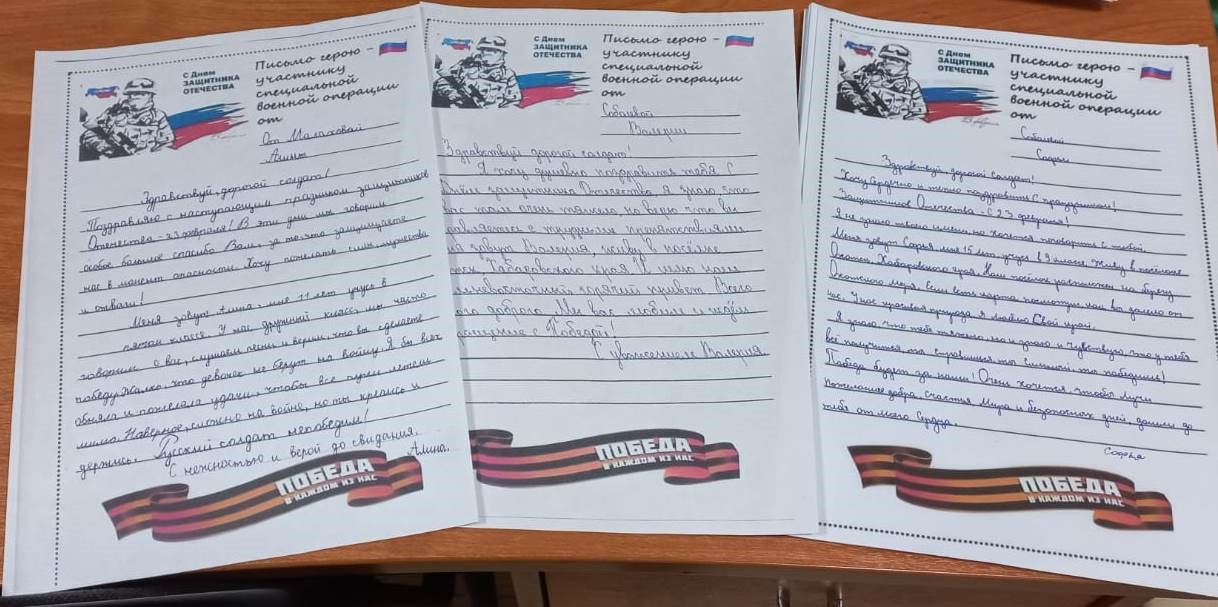 С Днем
ЗАЩИТНИКА
ОТЕЧЕСТВА
Письмо герою -
участнику
специальной
военной операции
от
От Малаховой
Алины
Здравствуй, дорогой солдат!
Поздравляю с наступающим праздником защитников
Отечества - 23 февраля! В эти дни мы говорим
особое большое спасибо Вам, за то, что защищаете
нас в момент опасности. Хочу пожелать силы, мужества
и отваги!
Меня зовут Алина, мне 11 лет учусь в
пятом классе. У нас дружный класс, мы часто
говорим о вас, слушаем песни и верим, что вы сделаете
победу. Жалко, что девочек не берут на войну. Я бы всех
обняла и пожелала удачи, чтобы все пули летели
мимо. Наверное, сложно на войне, но ты крепись и
держись. Русский солдат непобедим!
С нежностью и верой до свидания.
Алина.
ПОБЕДА
В КАЖДОМ ИЗ НАС
С Днем
ЗАЩИТНИКА
ОТЕЧЕСТВА
Письмо герою -
участнику
специальной
военной операции
от
Валерии
Здравствуй дорогой солдат!
Я хочу душевно поздравить тебя с
Днём защитника Отечества я знаю что
вас там очень тяжело, но верю что вы
с трудными препятствиями
зовут Валерия, живу в посёлке
Хабаровского края И шлю вам
горячий привет. Всего
доброго. Мы вас любим и ждём
с Победой!
С уважением Валерия
ПОБЕДА
В КАЖДОМ ИЗ НАС
С Днем
ЗАЩИТНИКА
ОТЕЧЕСТВА
Письмо герою -
участнику
специальной
военной операции
от
Софьи
Здравствуй, дорогой солдат!
Хочу сердечно и тепло поздравить с праздником!
Защитников Отечества - С 23 февраля!
Я не знаю твоего имени, но хочется поговорить с тобой.
Меня зовут Софья, мне 15 лет, учусь в 9 классе. Живу в посёлке
Охотск Хабаровского края. Наш посёлок расположен на берегу
Охотского моря, если есть карта посмотри, как вы далеко от
нас. У нас красивая природа я люблю Свой край.
Я знаю что тебе тяжело, но я знаю и чувствую, что у тебя
всё получится, ты справишься, ты сильный, ты победишь!
Победа будет за нами! Очень хочется, чтобы лучи
Пожелание добра, счастья, Мира и безопасных дней, дошли до
тебя от моего Сердца.
Софья
ПОБЕДА
В КАЖДОМ ИЗ НАС